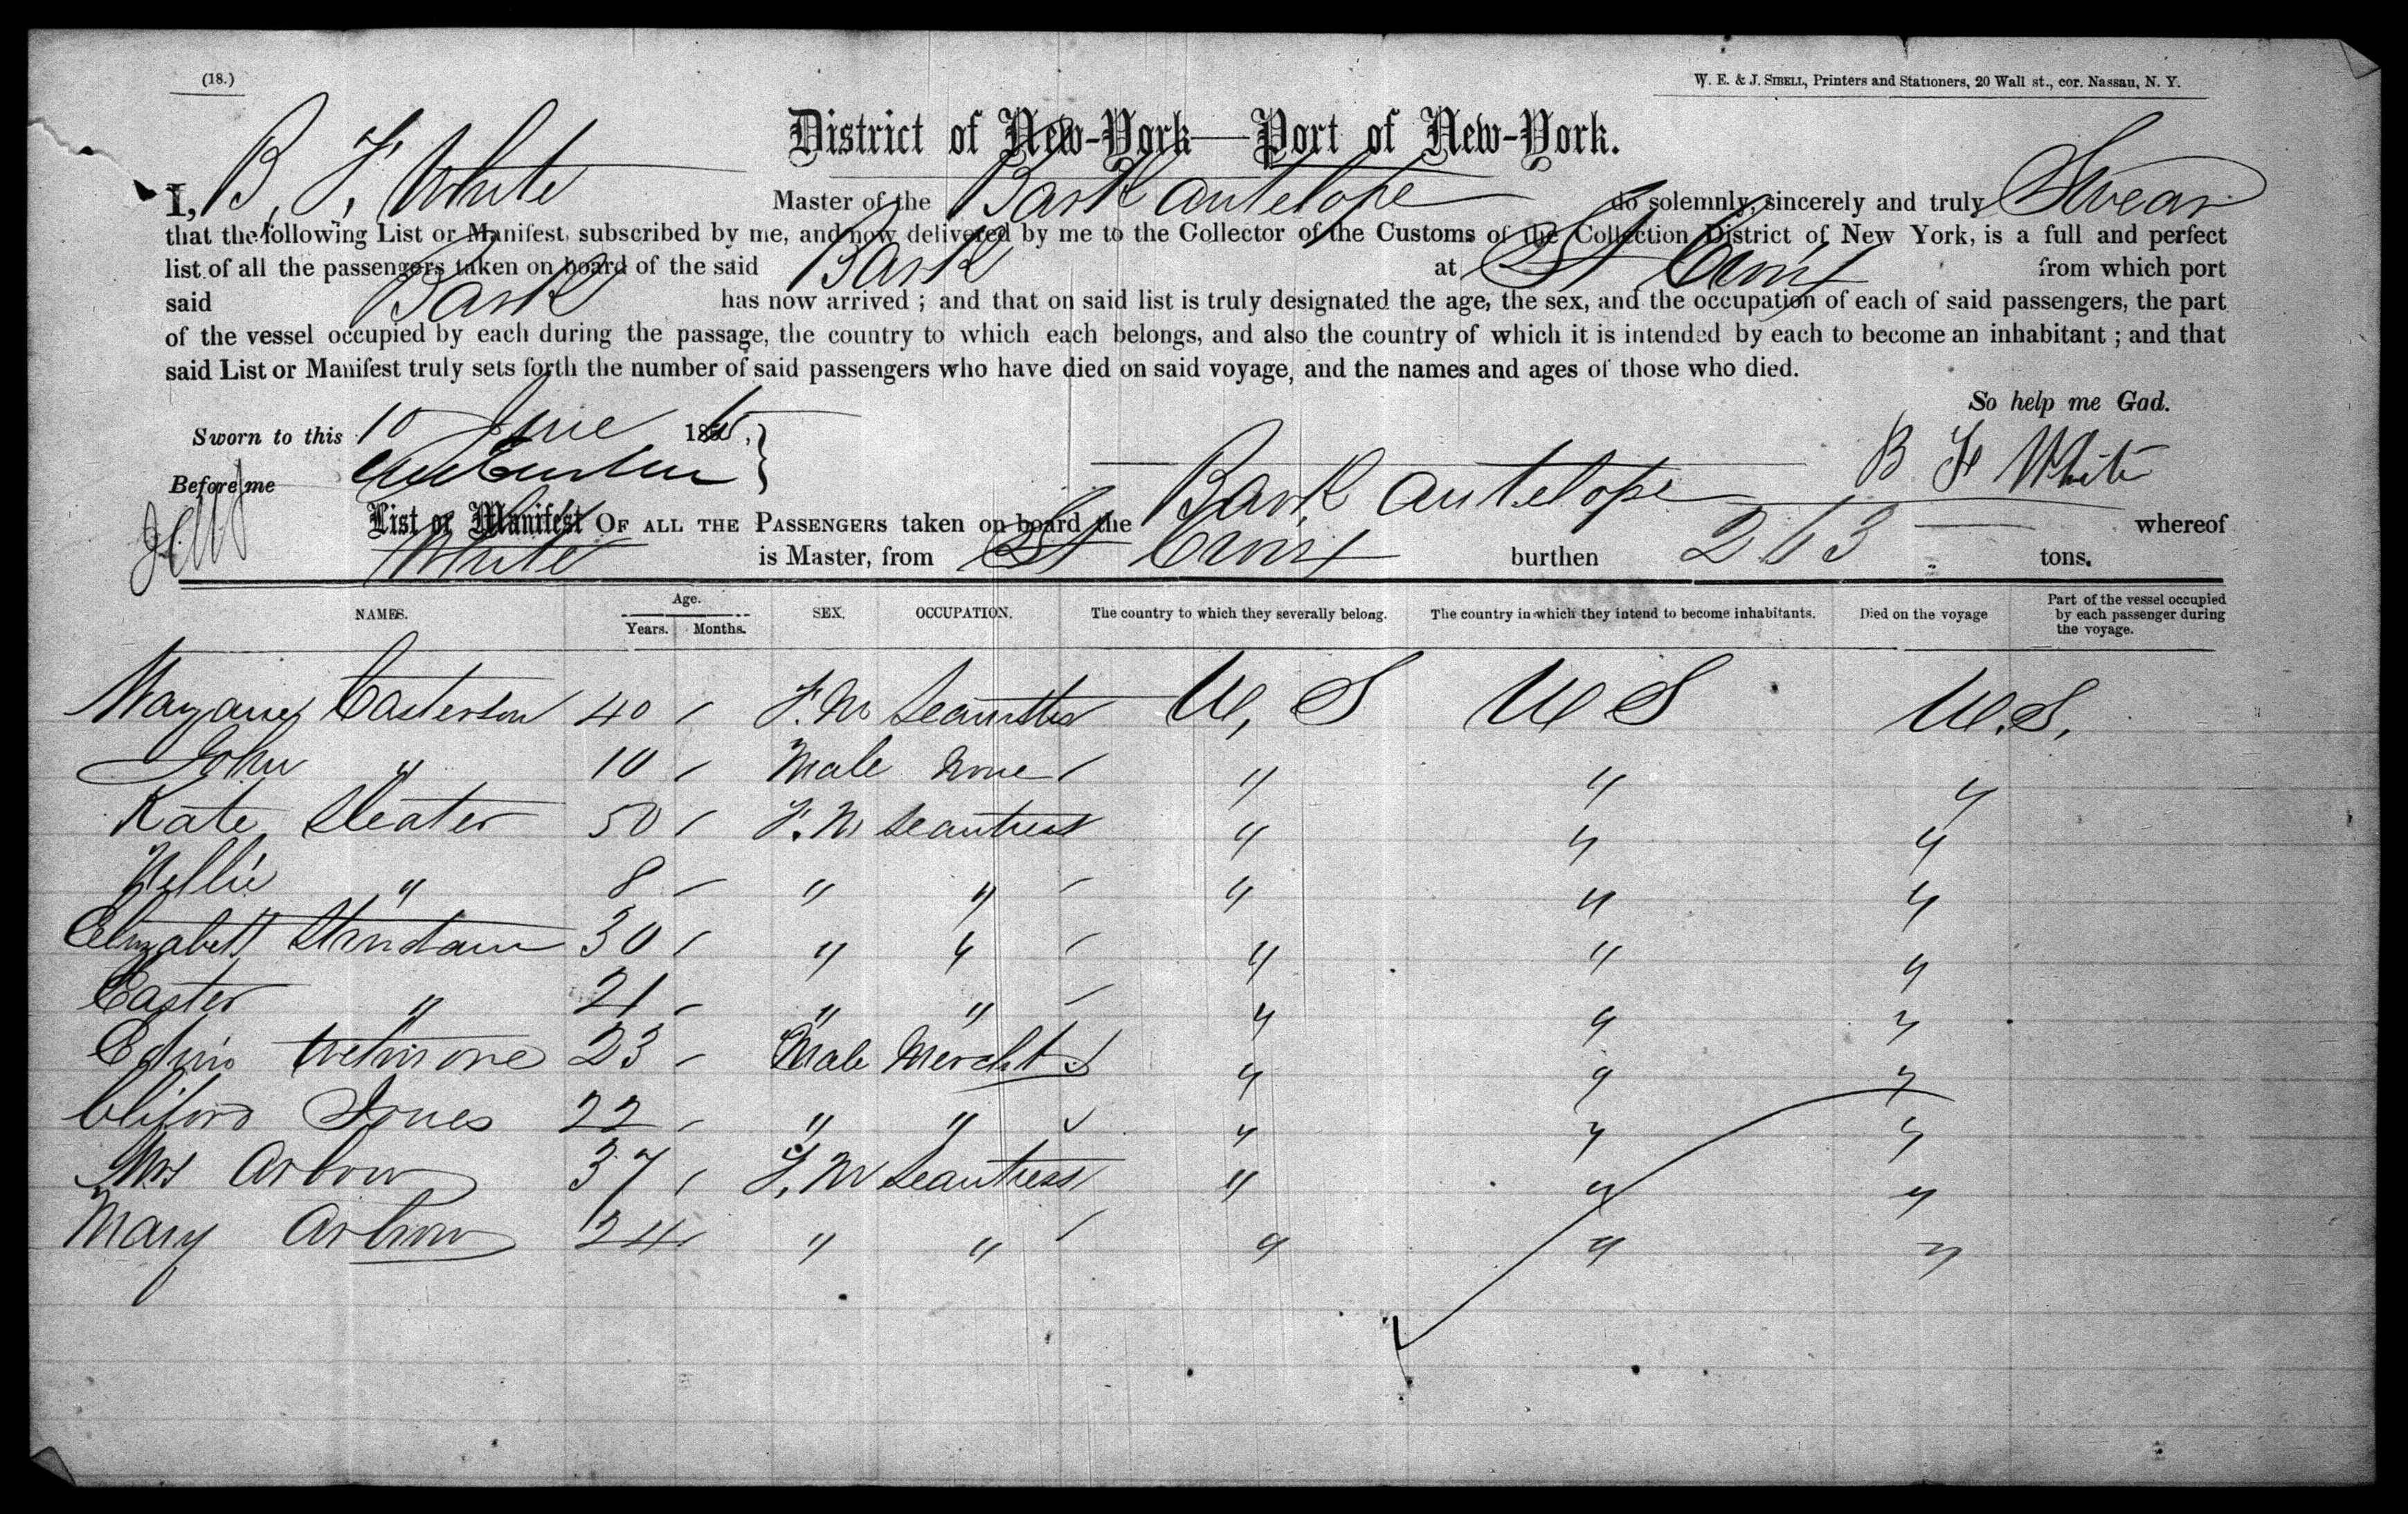 (18.)
W. E. & J. SIBELL, Printers and Stationers, 20 Wall st., cor. Nassau, N. Y.
District of New-York—Port of New-York.
I, B. F. White Master of the Bark Antelope do solemnly, sincerely and truly Swear
that the following List or Manifest, subscribed by me, and now delivered by me to the Collector of the Customs of the Collection District of New York, is a full and perfect
list of all the passengers taken on board of the said Bark at St Croix from which port
said Bark has now arrived ; and that on said list is truly designated the age, the sex, and the occupation of each of said passengers, the part
of the vessel occupied by each during the passage, the country to which each belongs, and also the country of which it is intended by each to become an inhabitant ; and that
said List or Manifest truly sets forth the number of said passengers who have died on said voyage, and the names and ages of those who died.
So help me Gad.
Sworn to this 10 June 186
Before me
B F White
List or Manifest OF ALL THE PASSENGERS taken on board the Bark Antelope whereof
White is Master, from St Croix burthen 263 tons.
NAMES. Age. Years. Months. SEX. OCCUPATION. The country to which they severally belong. The country in which they intend to become inhabitants. Died on the voyage Part of the vessel occupied by each passenger during the voyage.
Maryane Casterson 40 F. M U, S U S U.S.
John " 10 Male None " " "
Kate Sleater 50 F. M Seamtress " " "
Nellie " 8 " " " " "
Elizabeth 30 " " " " "
Easter " 21 " " " " "
Edwin Wetmore 23 Male Mercht " " "
Cliford Jones 22 " " " " "
Mrs Arbow 37 F. M Seamtress " " "
Mary 24 " " " " "